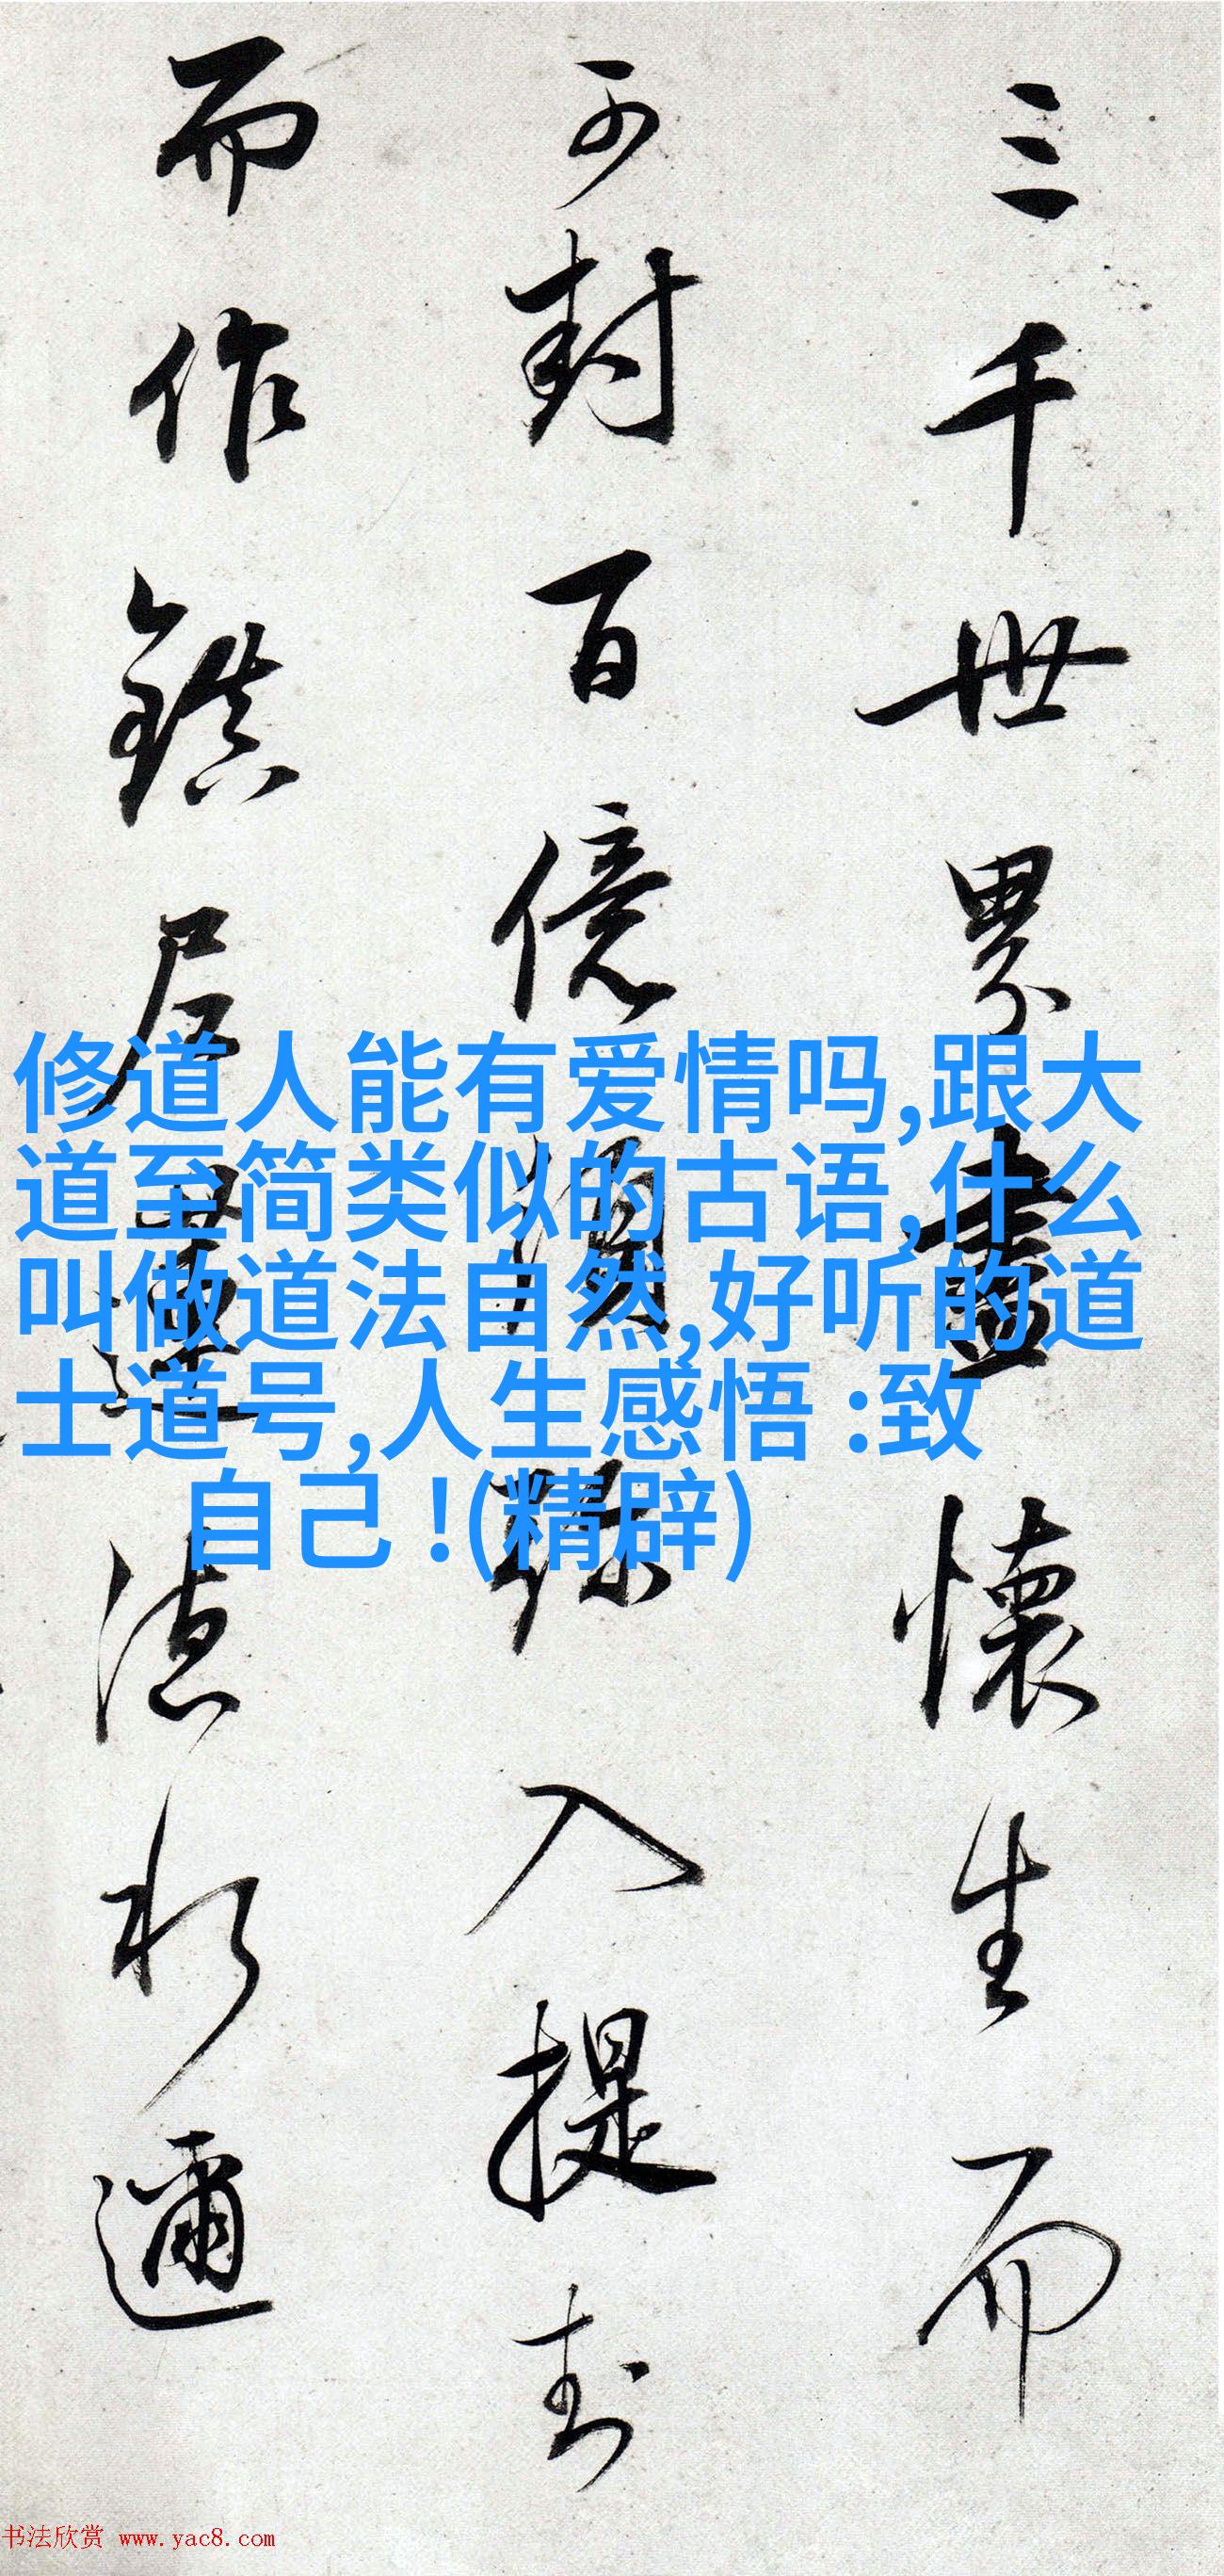 三千世界盡懷生而
可封百億
入提封
而作鎮
居
德水邇
修道人能有爱情吗,跟大
道至简类似的古语,什么
叫做道法自然,好听的道
士道号,人生感悟 :致
自己 !(精辟)
书法欣赏 www.yac8.com